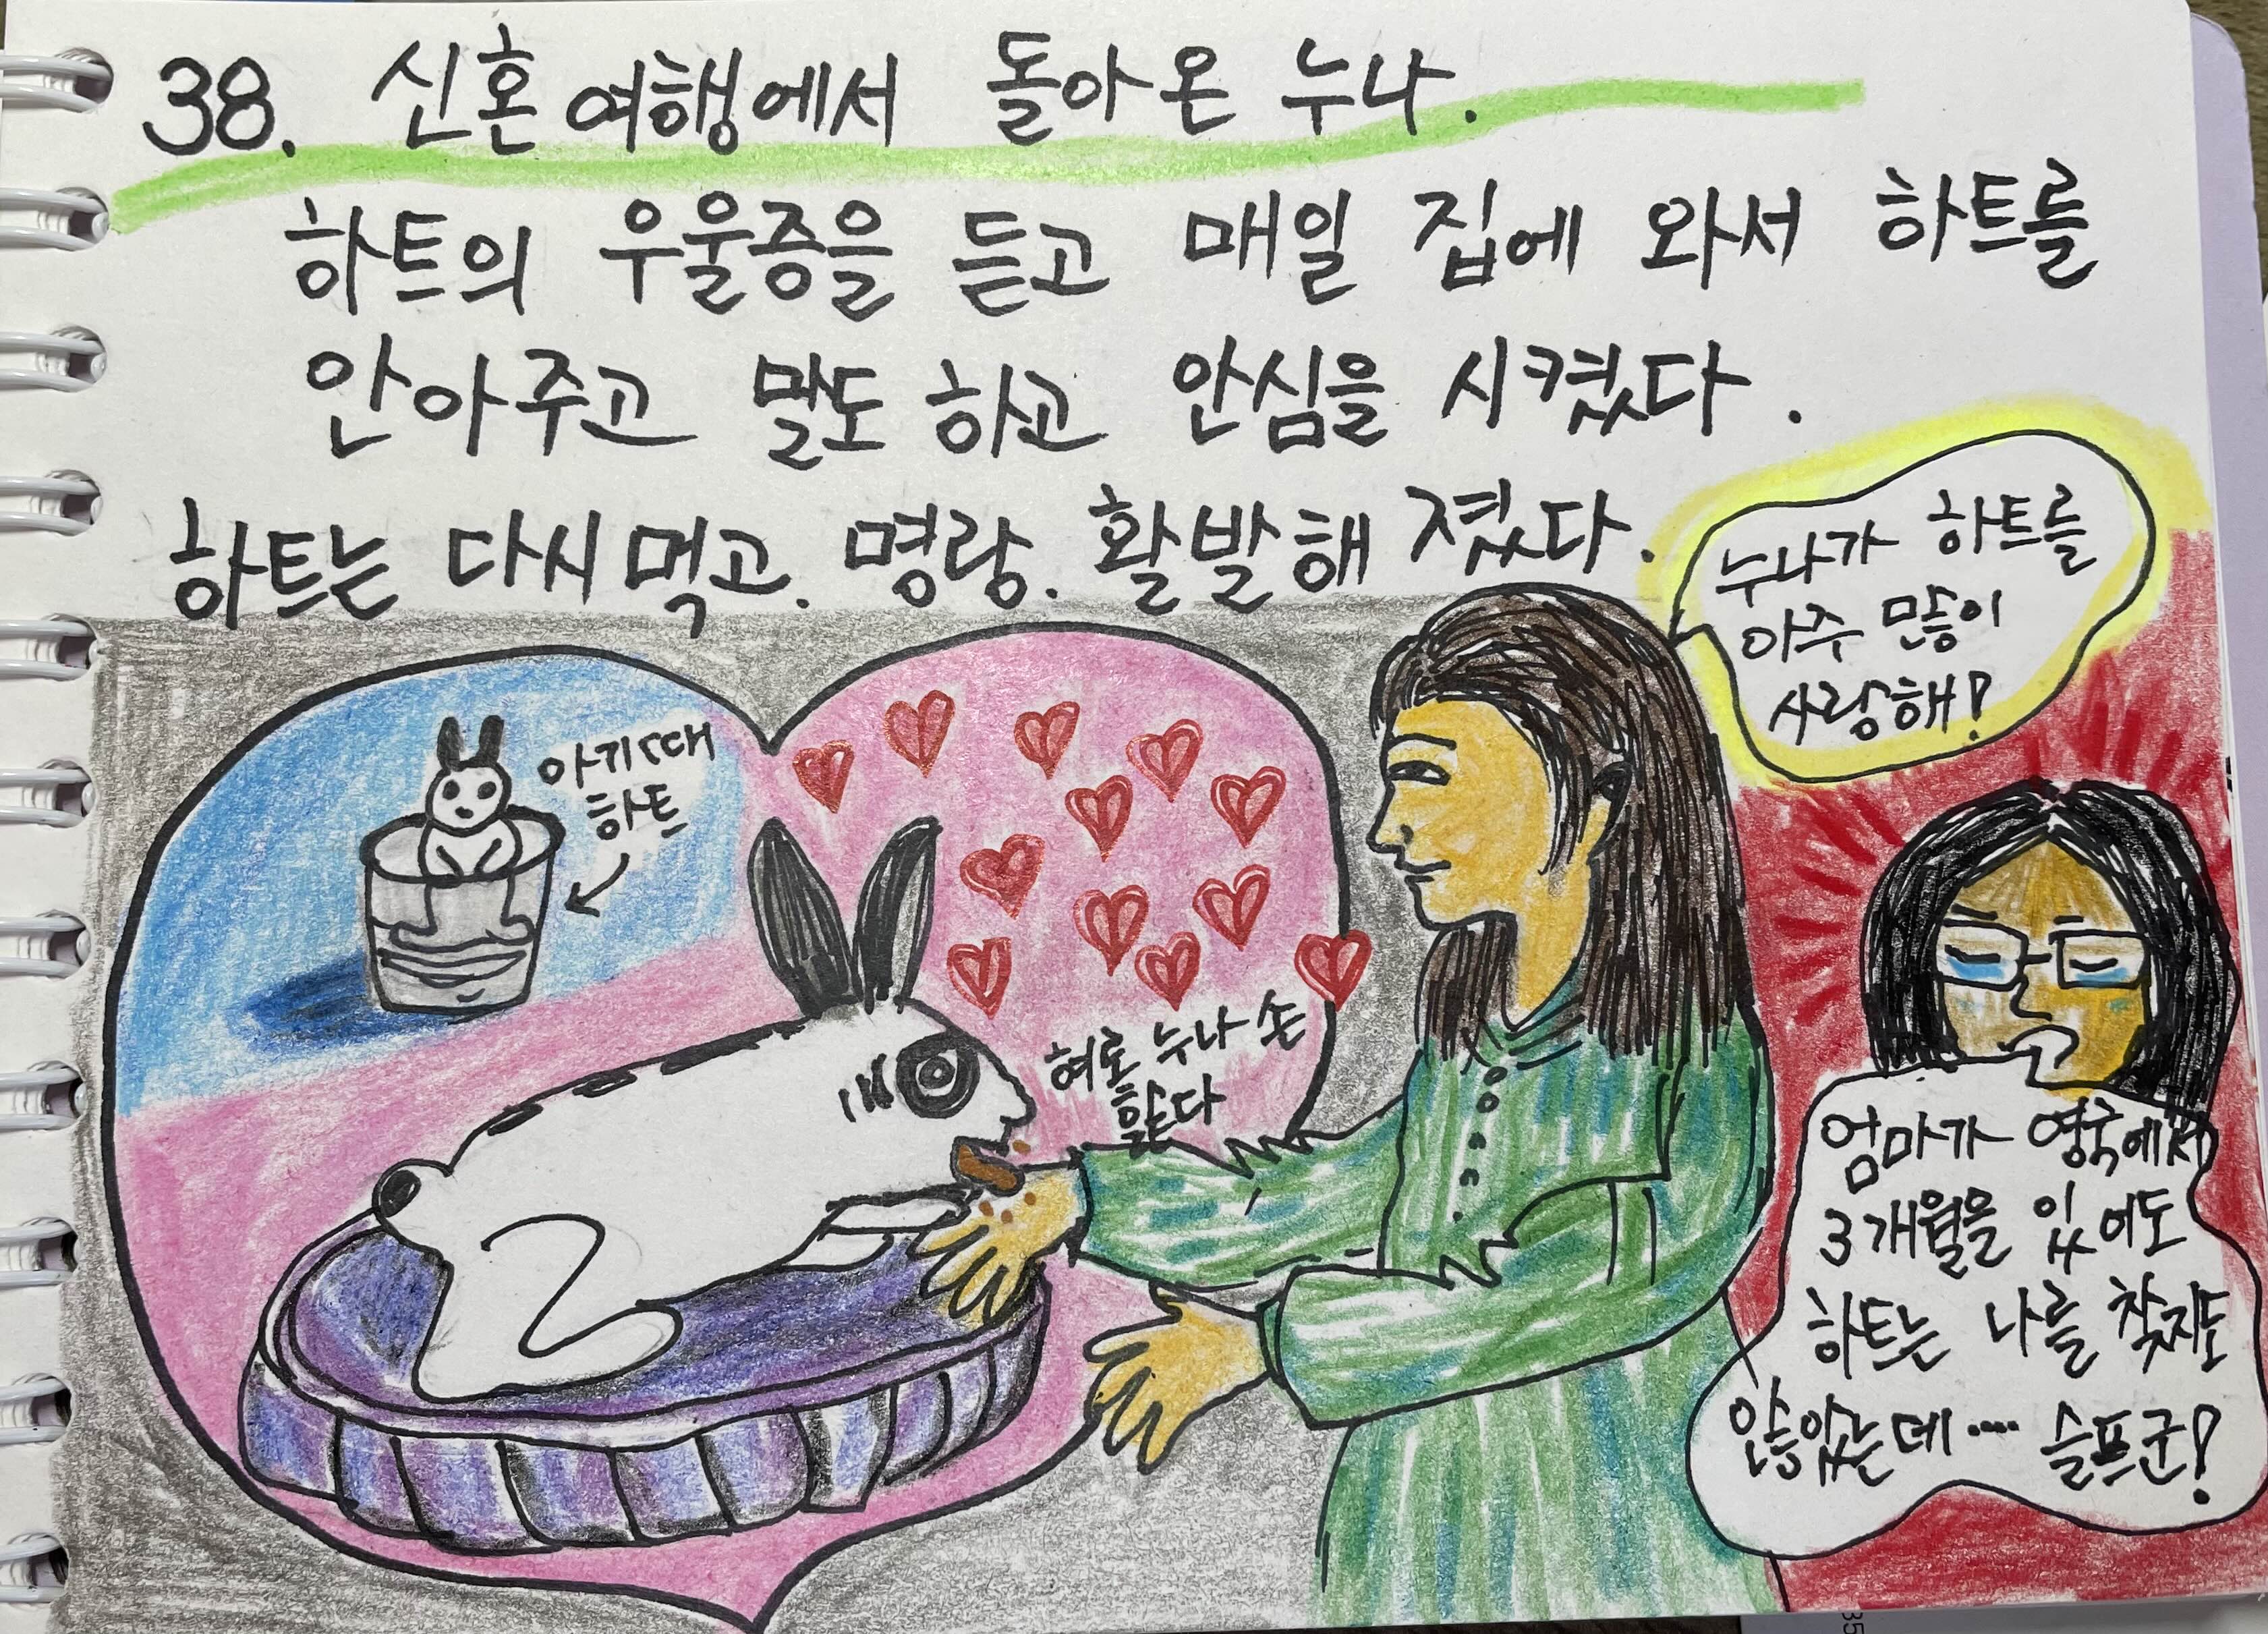 38. 신혼여행에서 돌아온 누나.
하트의 우울증을 듣고 매일 집에 와서 하트를
안아주고 말도 하고 안심을 시켰다.
하트는 다시 먹고. 명랑. 활발해 졌다.
누나가 하트를
아주 많이
사랑해!
아기때
하트
혀로 누나 손
핥는다
엄마가 영국에서
3개월을 있어도
하트는 나를 찾지도
않았는데.... 슬프군!